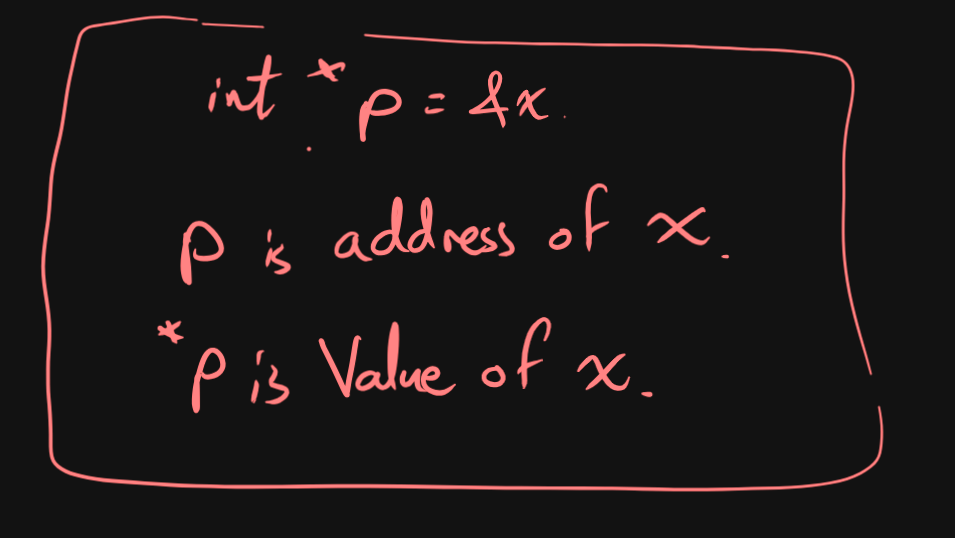 int *p = &x.
p is address of x.
*p is Value of x.